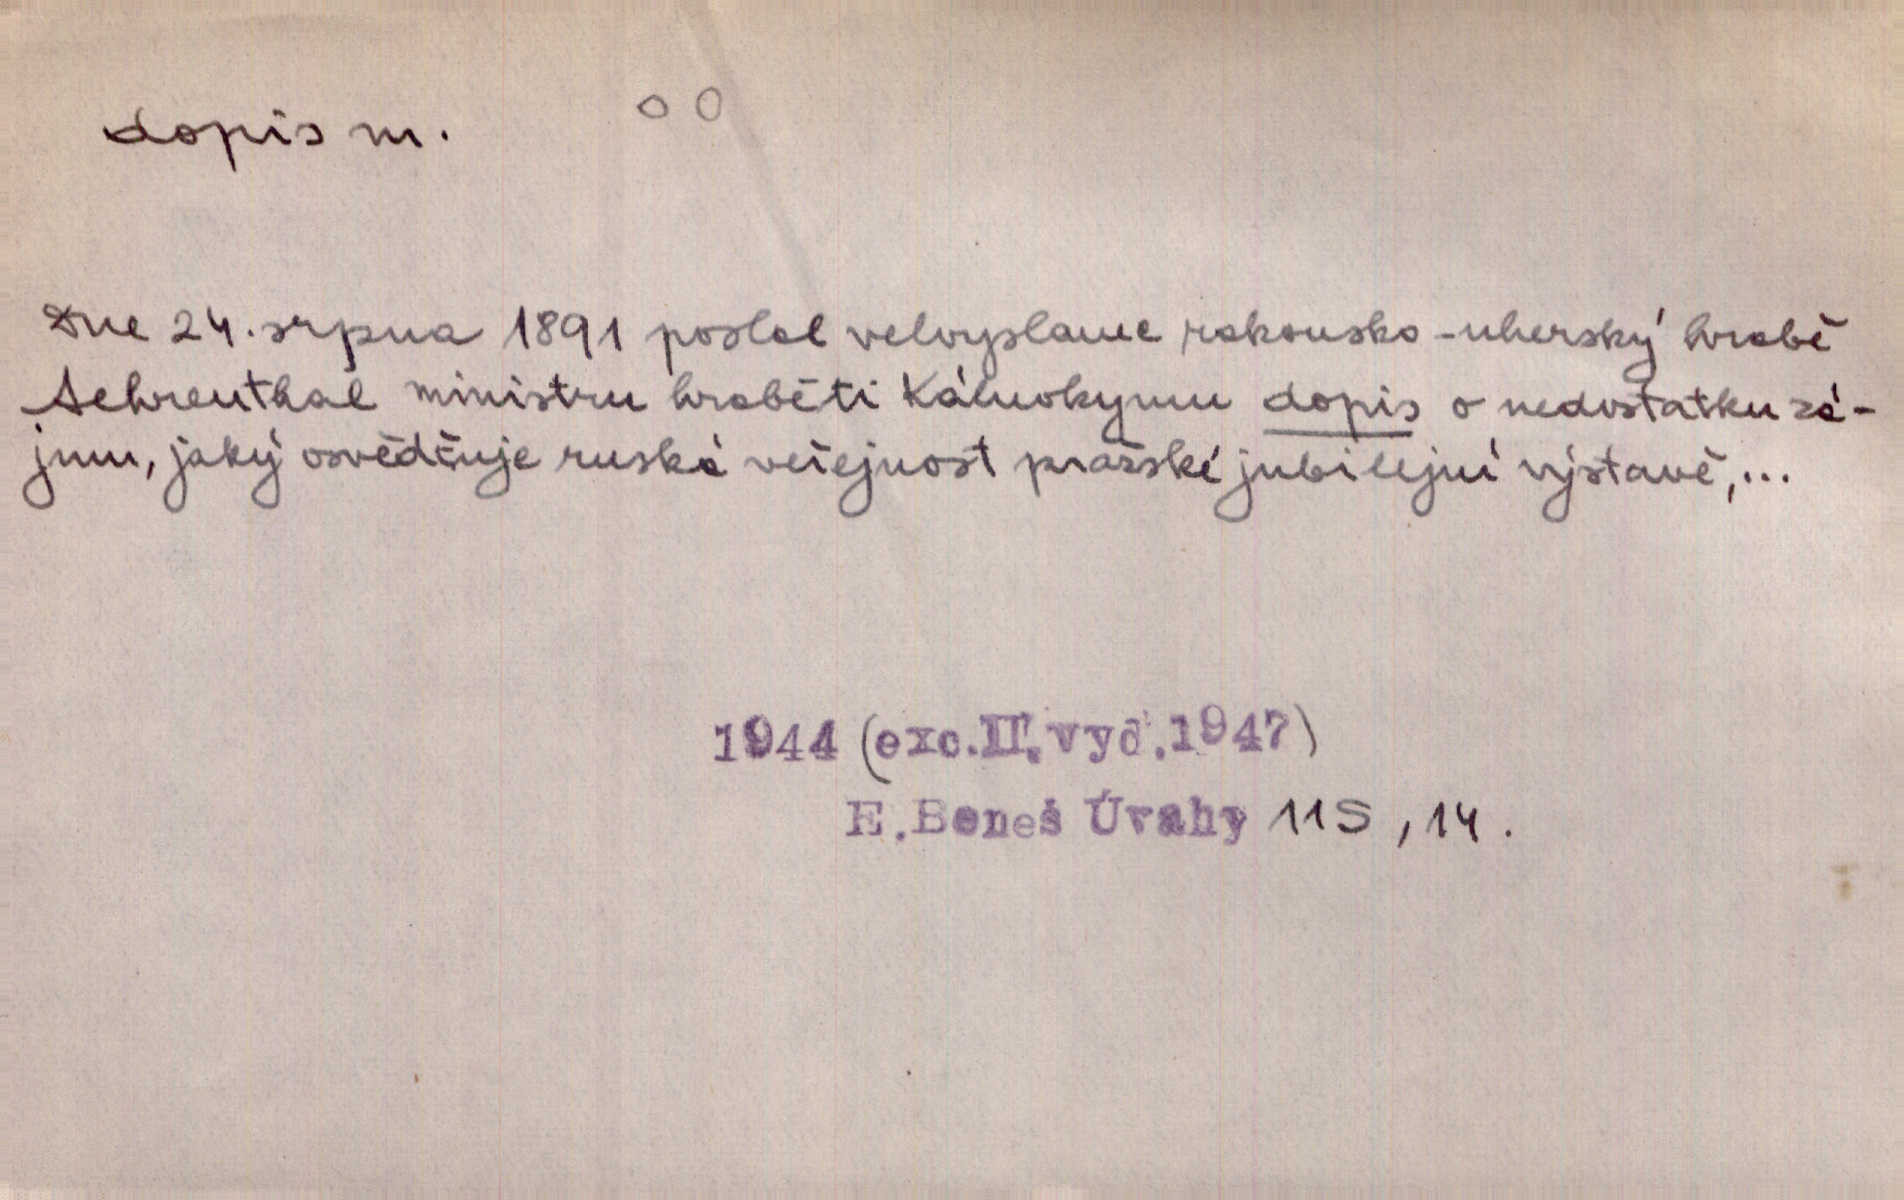 dopis m.
Dne 24. srpna 1891 poslal velvyslanec rakousko-uherský hrabě
Aehrenthal ministru hraběti Kálnokymu dopis o nedostatku zá-
jmu, jaký osvědčuje ruská veřejnost pražské jubilejní výstavě,...
1944 (exc. II. vyd. 1947)
E. Beneš Úvahy 115, 14.